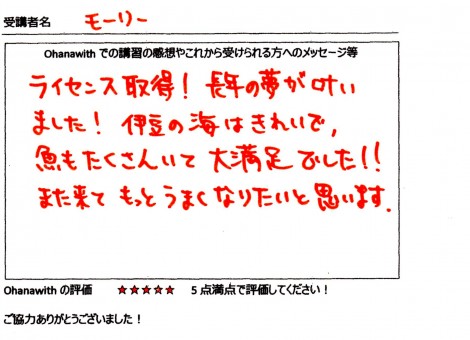 受講者名 モーリー
Ohanawith での講習の感想やこれから受けられる方へのメッセージ等
ライセンス取得！長年の夢が叶い
ました！伊豆の海はきれいで，
魚もたくさんいて大満足でした！！
また来てもっとうまくなりたいと思います．
Ohanawith の評価 ★★★★★ 5点満点で評価してください！
ご協力ありがとうございました！